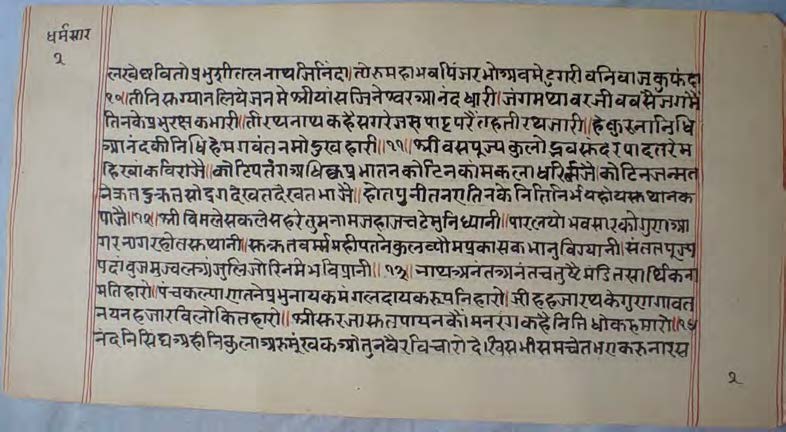 धर्मसार
२
लखेछवितोप्रभुशीतलनाथजिनिंदा॥तोरुमहाभवपिंजरभोअवमेटुगरीवनिवाजकुफंदा
१०॥तीनिसुग्यानलियेजनमेश्रीयांसजिनेश्वरआनंदधारी॥जंगमथावरजीववसैजगमैं
तिनकेप्रभुरक्षकभारी॥तीरथनाथकहेसगरेजसपाट्टपरैंतहतीरथजारी॥हेकुरनानिधि
आनंदकीनिधिहेभगवंतनमोदुखहारी॥११॥श्रीवसपूज्यकुलोद्भवसुंदरपादतरेम
हिखांकविराजै॥कोटिपतंगअधिछप्रभातनकोटिनकांमकलाधरिलजै॥कोटिनजन्मत
नेक्रतदुक्रतसोदृगदेखतदेखतभाजै॥होतपुनीतनएतिनकेनितिनिर्भयहोयसुथानक
पाजै॥१२॥श्रीविमलेसकलेसहरेतुमनामजहाजचटेमुनिध्यानी॥पारलयोभवसारकोगुराआ
गरनागरहोतसुथानी॥सुक्रतवर्म्ममहीपतनेकुलव्यौमप्रकासकभानुविग्यानी॥संततपूज्य
पदांबुजमुज्वलअंजुलिजोरिनमेभविप्रानी॥१३॥नाथअनंतअनंतचतुष्टैमंडितसार्थिकना
मतिहारो॥पंचकल्याराातनेप्रभुनायकमंगलदायकरूपनिहारो॥जीहहजारथकेगुरागावत
नयनहजारविलोकितहारो॥श्रीसुरजासुतपायनकौंमनरंगकहैनितिधोकहमारो॥१४
नंदनिसिंघअहीनिकुलाअरुमूंखकओतुनवैरविचारो॥देखिसभीसमचेतभएकरुनारस
२